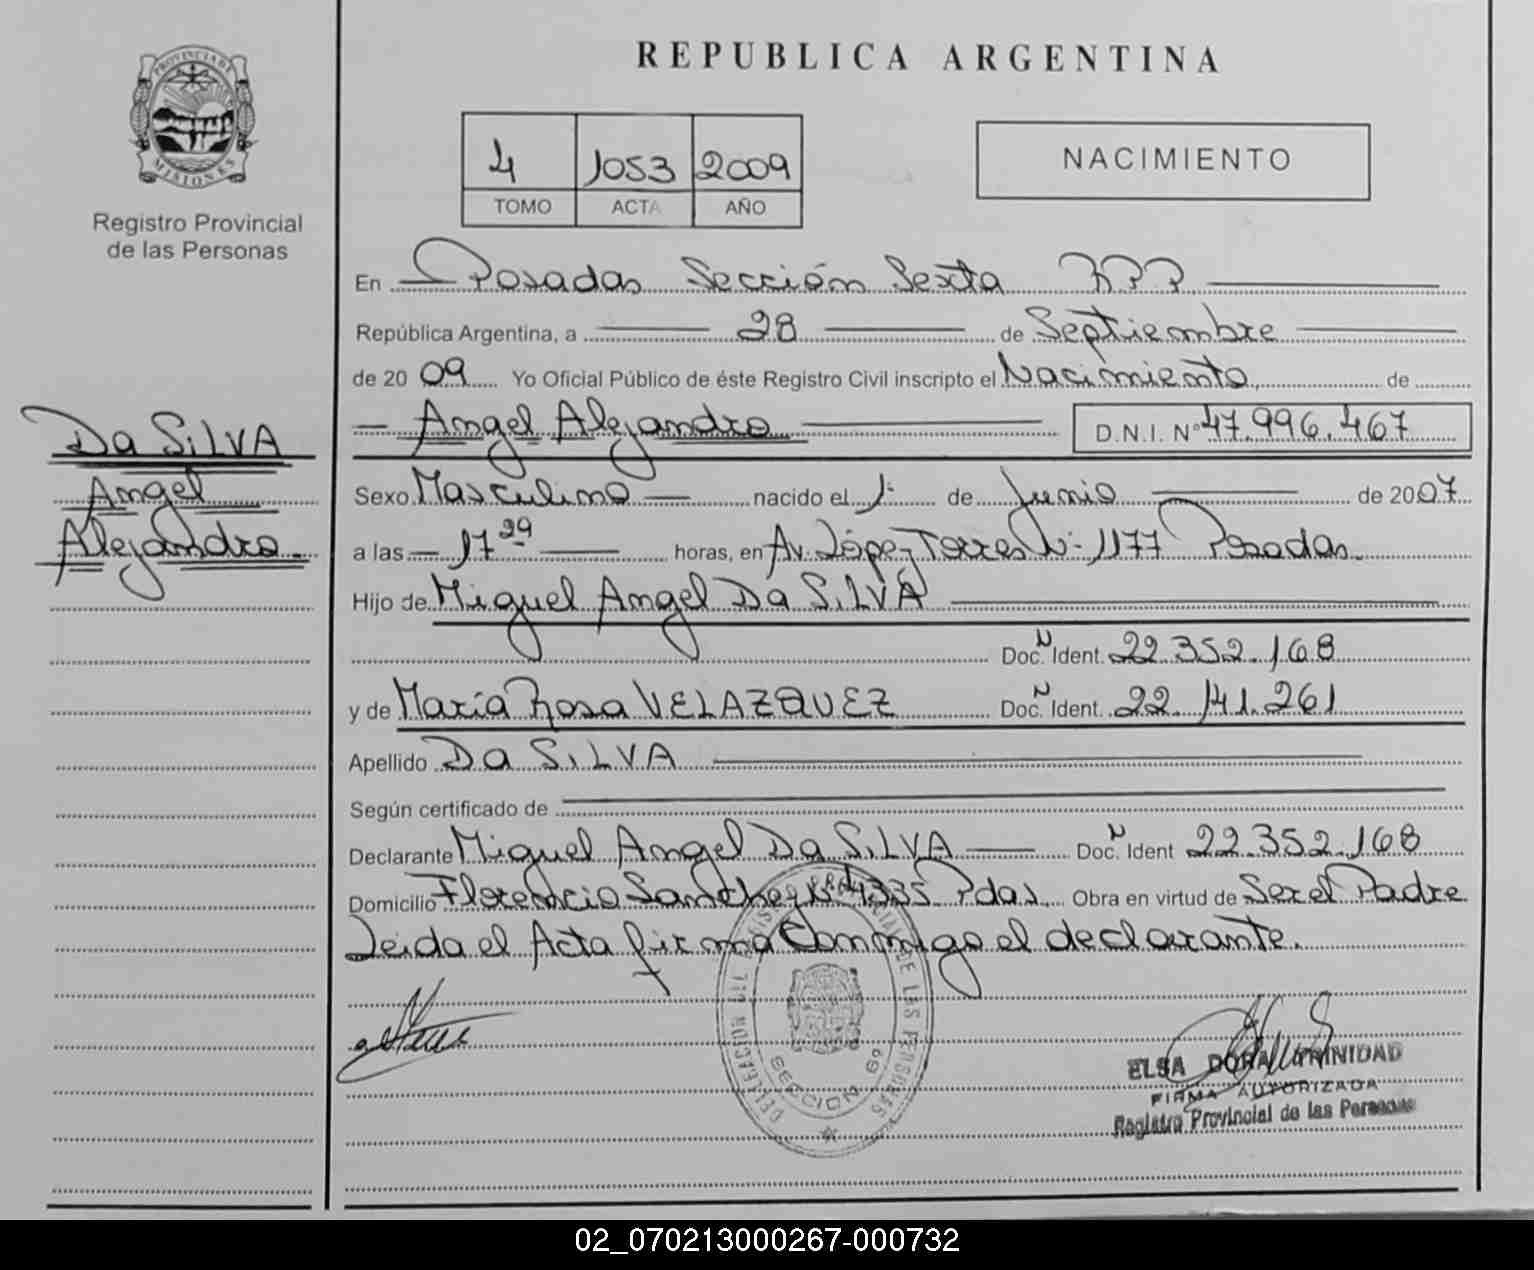 PROVINCIA DE
MISIONES
Registro Provincial
de las Personas
REPUBLICA ARGENTINA
4 1053 2009
TOMO ACTA AÑO
NACIMIENTO
En Posadas Sección Sexta RPP
República Argentina, a 28 de Septiembre
de 2009 Yo Oficial Público de éste Registro Civil inscripto el Nacimiento de
Angel Alejandro D.N.I. Nº 47.996.467
Da SiLVA
Angel
Alejandro
Sexo Masculino nacido el 1º de Junio de 2007
a las 17 29 horas, en Av. López Torres Nº 1177 Posadas.
Hijo de Miguel Angel Da SiLVA
Doc. N Ident. 22.352.168
y de María Rosa VELAZQUEZ Doc. N Ident. 22.141.261
Apellido Da SiLVA
Según certificado de
Declarante Miguel Angel Da SiLVA Doc. N Ident 22.352.168
Domicilio Florencio Sanchez Nº 4335 Pdas. Obra en virtud de Ser el Padre
Leida el Acta firma Conmigo el declarante.
DELEGACION REGISTRO PROVINCIAL DE LAS PERSONAS
SECCION 6º
ELSA DORA TRINIDAD
FIRMA AUTORIZADA
Registro Provincial de las Personas
02_070213000267-000732